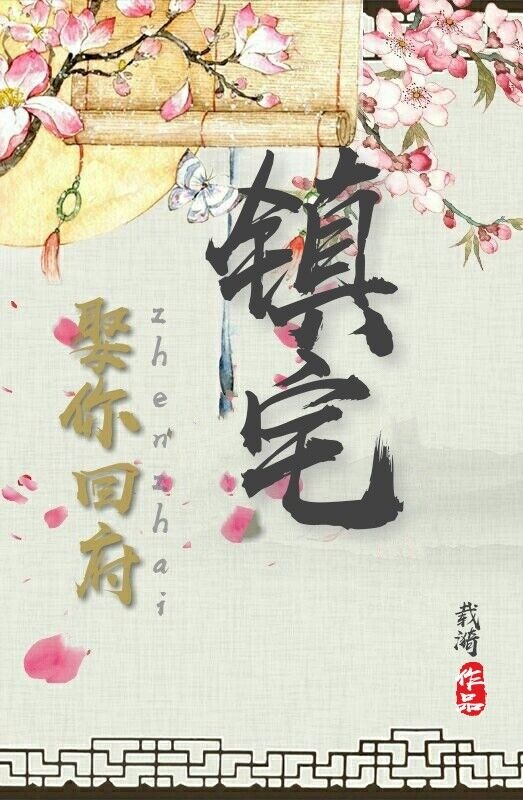 娶你回府
zhenzhai
镇宅
载漪
作品